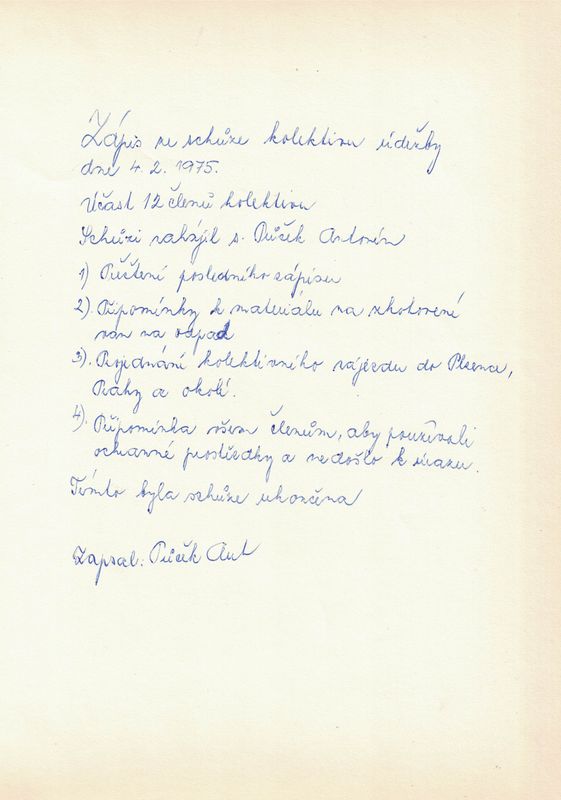 Zápis ze schůze kolektivu údržby
dne 4. 2. 1975.
Účast 12 členů kolektivu
Schůzi zahájil s. Průček Antonín
1) Přečtení posledního zápisu
2). Připomínky k materiálu na zhotovené
van na odpad
3). Projednání kolektivního zájezdu do Plzena,
Prahy a okolí.
4). Připomínka všem členům, aby používali
ochranné prostředky a nedošlo k úrazu.
Tímto byla schůze ukončena
Zapsal: Průček Ant